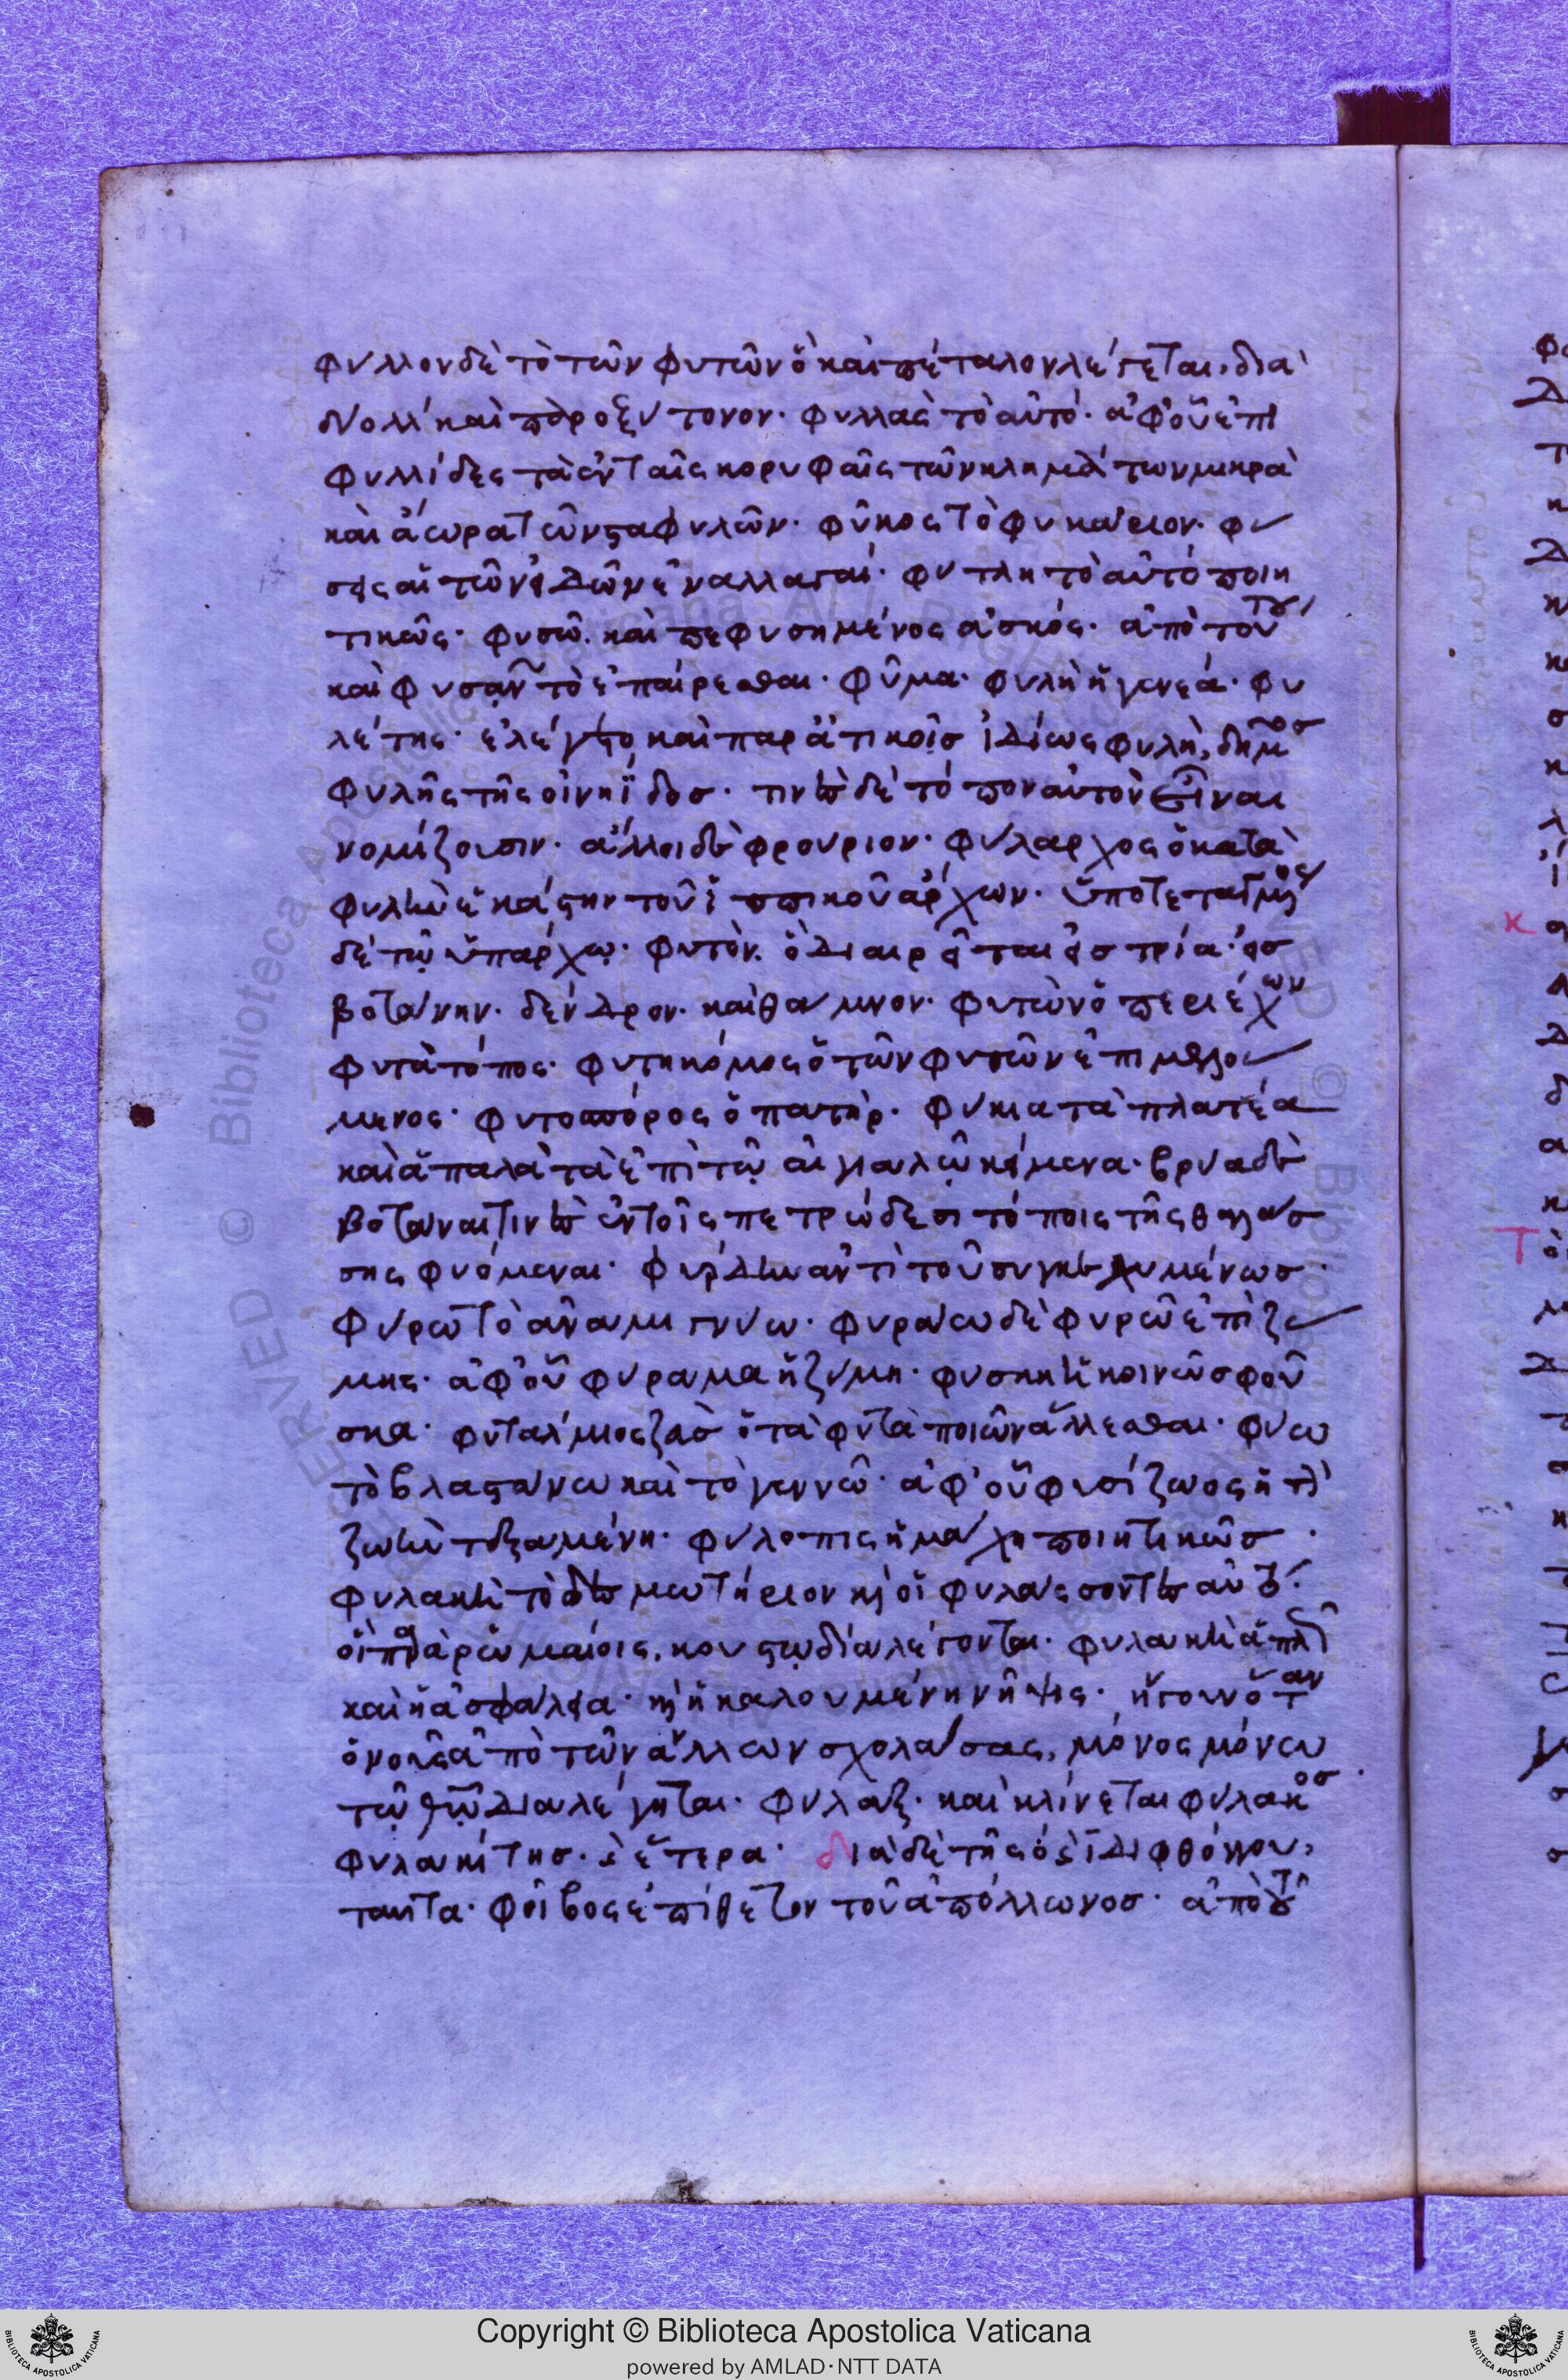 φύλλον δὲ τὸ τῶν φυτῶν ὃ καὶ πέταλον λέγεται, διὰ
δύο λλ καὶ παροξύτονον· φυλλὰς τὸ αὐτό· ἀφ' οὗ ἐπι
φυλλίδες τὰ ἐν ταῖς κορυφαῖς τῶν κλημάτων μικρὰ
καὶ ἄωρα τῶν σταφυλῶν· φῦκος τὸ φυκάριον· φύ
σεις αἱ τῶν εἰδῶν ἐναλλαγαί· φύτλη τὸ αὐτὸ ποιη
τικῶς· φυσῶ· καὶ πεφυσημένος ἀσκός· ἀπὸ τούτου
καὶ φυσᾶν τὸ ἐπαίρεσθαι· φῦμα· φυλὴ ἡ γενεά· φυ
λέτης· ἐλέγετο καὶ παρ' ἀττικοῖς ἰδίως φυλὴ, δῆμος
φυλῆς τῆς οἰνηΐδος· τινὲς δὲ τόπον αὐτὸν εἶναι
νομίζουσιν· ἄλλοι δὲ φρούριον· φύλαρχος ὁ κατὰ
φυλὴν ἑκάστην τοῦ ἱππικοῦ ἄρχων· ὑποτεταγμένος
δὲ τῷ ὑπάρχῳ· φυτόν· ὃ διαιρεῖται εἰς τρία· εἰς
βοτάνην· δένδρον· καὶ θάμνον· φυτὼν ὁ περιέχων
φυτὰ τόπος· φυτηκόμος ὁ τῶν φυτῶν ἐπιμελού
μενος· φυτοσπόρος ὁ πατήρ· φύκια τὰ πλατέα
καὶ ἁπαλὰ τὰ ἐπὶ τῷ αἰγιαλῷ κείμενα· βρύα δὲ
βοτάναι τινὲς ἐν τοῖς πετρώδεσι τόποις τῆς θαλάσ
σης φυόμεναι· φύρδην ἀντὶ τοῦ συγκεχυμένως·
φύρω τὸ ἀναμιγνύω· φυράω δὲ φυρῶ ἐπὶ ζύ
μης· ἀφ' οὗ φύραμα ἡ ζύμη· φύσκη ἡ κοινῶς φοῦ
σκα· φυτάλμιος ζεὺς ὁ τὰ φυτὰ ποιῶν ἄλλεσθαι· φύω
τὸ βλαστάνω καὶ τὸ γεννῶ· ἀφ' οὗ φυσίζωος ἡ τὴν
ζωὴν δεξαμένη· φύλοπις ἡ μάχη ποιητικῶς·
φυλακὴ τὸ δεσμωτήριον καὶ οἱ φυλάσσοντες αὐτό·
οἳ παρὰ ῥωμαίοις, κουστωδία λέγονται· φυλακὴ ἁπλῶς
καὶ ἡ ἀσφάλεια· καὶ ἡ καλουμένη νῆψις· ἤγουν ὅταν
ὁ νοῦς ἀπὸ τῶν ἄλλων σχολάσας, μόνος μόνω
τῷ θεῷ διαλέγηται· φύλαξ· καὶ κλίνεται φύλακος
φυλακίτης· καὶ ἕτερα· διὰ δὲ τῆς οι διφθόγγου,
ταῦτα· φοῖβος ἐπίθετον τοῦ ἀπόλλωνος· ἀπὸ τοῦ
Copyright © Biblioteca Apostolica Vaticana
powered by AMLAD·NTT DATA